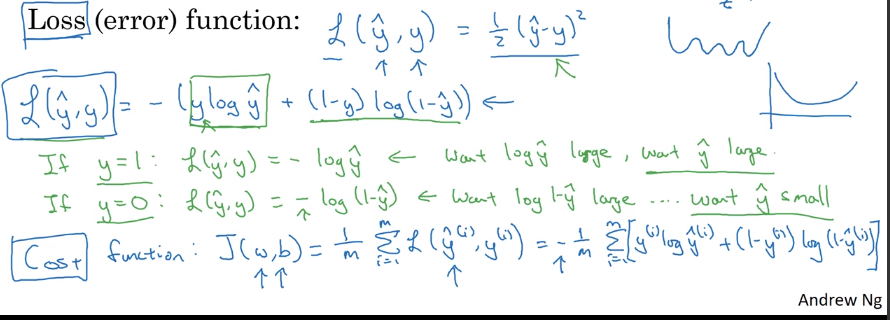 Loss (error) function: ℒ(ŷ, y) = ½ (ŷ-y)²
ℒ(ŷ, y) = - (y log ŷ + (1-y) log(1-ŷ)) ←
If y=1: ℒ(ŷ, y) = - log ŷ ← Want log ŷ large, want ŷ large.
If y=0: ℒ(ŷ, y) = - log (1-ŷ) ← Want log 1-ŷ large .... want ŷ small
Cost function: J(w, b) = 1/m Σ_{i=1}^{m} ℒ(ŷ^{(i)}, y^{(i)}) = - 1/m Σ_{i=1}^{m} [y^{(i)} log ŷ^{(i)} + (1-y^{(i)}) log (1-ŷ^{(i)})]
Andrew Ng